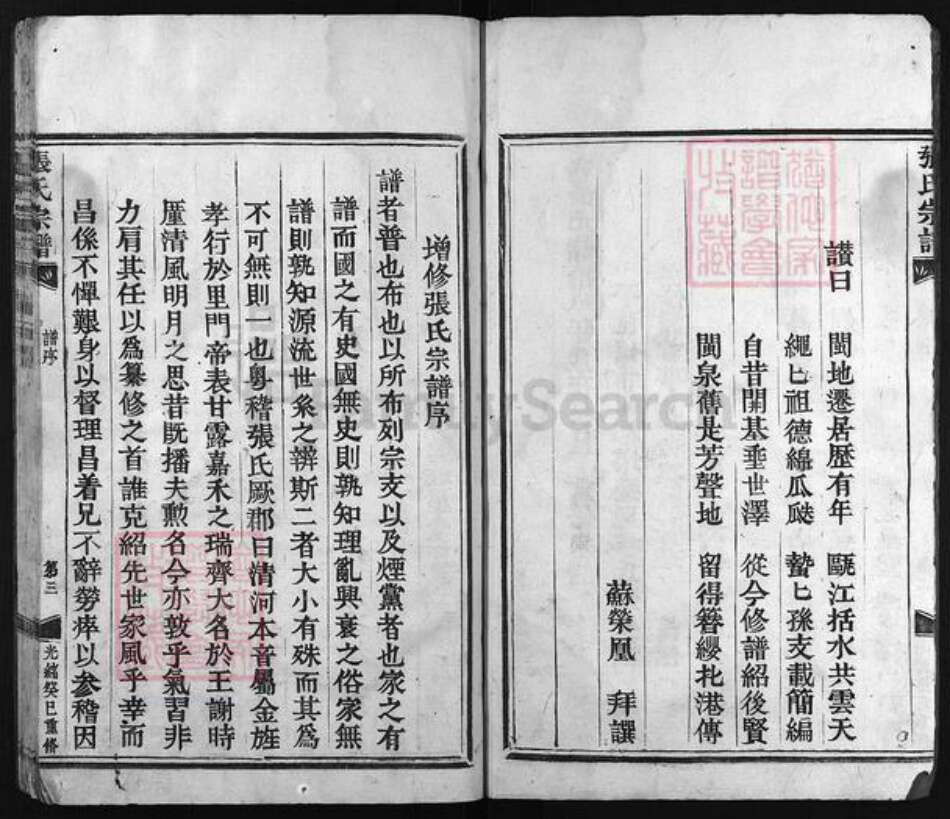 張氏宗譜
讃曰
閩地遷居歷有年 甌江括水共雲天
繩匕祖德綿瓜瓞 蟄匕孫支載簡編
自昔開基垂世澤 從今修譜紹後賢
閩泉舊是芳聲地 留得簪纓札港傳
蘇榮凰 拜譔
增修張氏宗譜序
譜者普也布也以所布列宗支以及煙黨者也家之有
譜而國之有史國無史則孰知理亂興衰之俗家無
譜則孰知源流世系之辨斯二者大小有殊而其爲
不可無則一也粵稽張氏厥郡曰清河本音屬金旌
孝行於里門帝表甘露嘉禾之瑞齊大名於王謝時
厪清風明月之思昔既播夫勲名今亦敦乎氣習非
力肩其任以爲纂修之首誰克紹先世家風乎幸而
昌係不憚艱身以督理昌着兄不辭勞瘁以參稽因
張氏宗譜
譜序
第三
光緒癸巳重修
FamilySearch